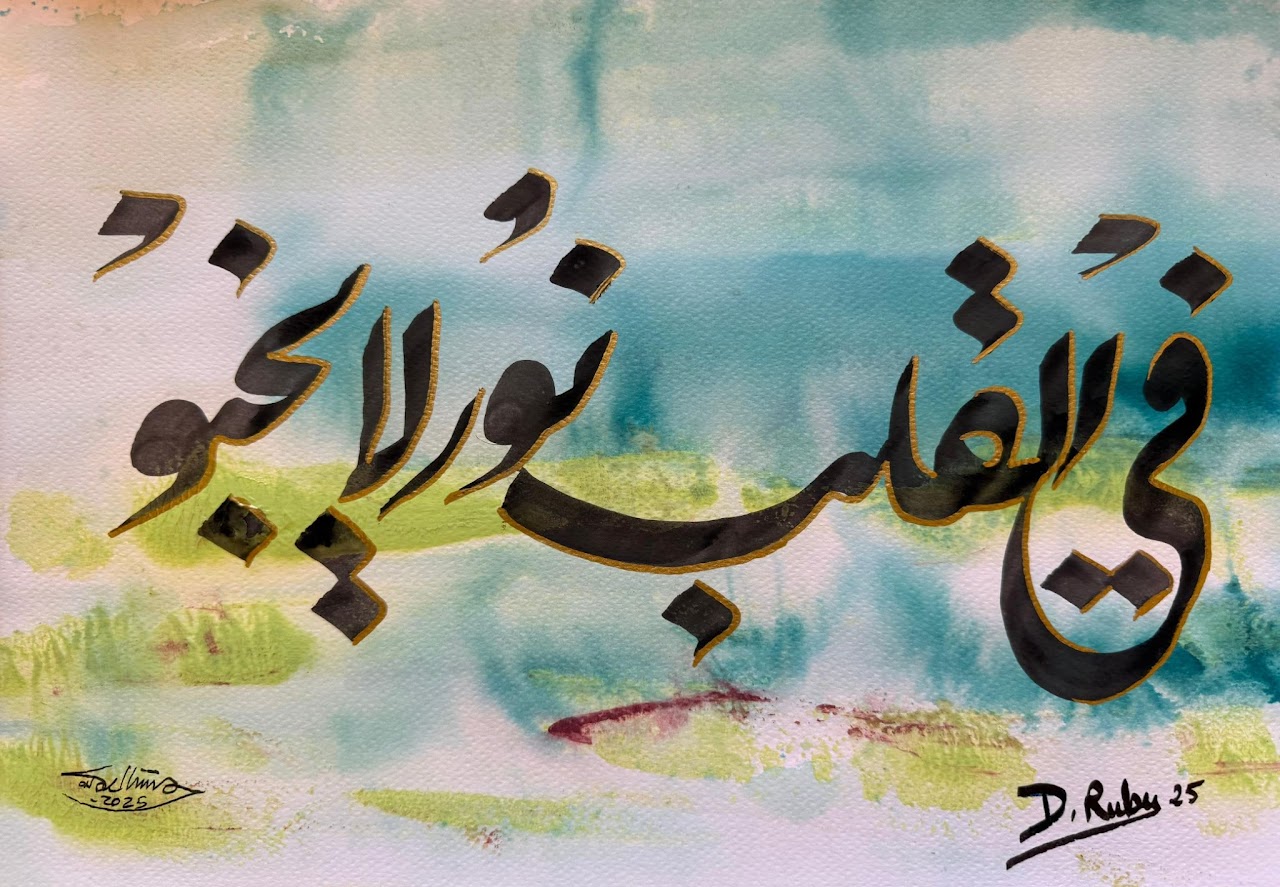 في القلب نور لا يخبو
2025
D. Rubu 25